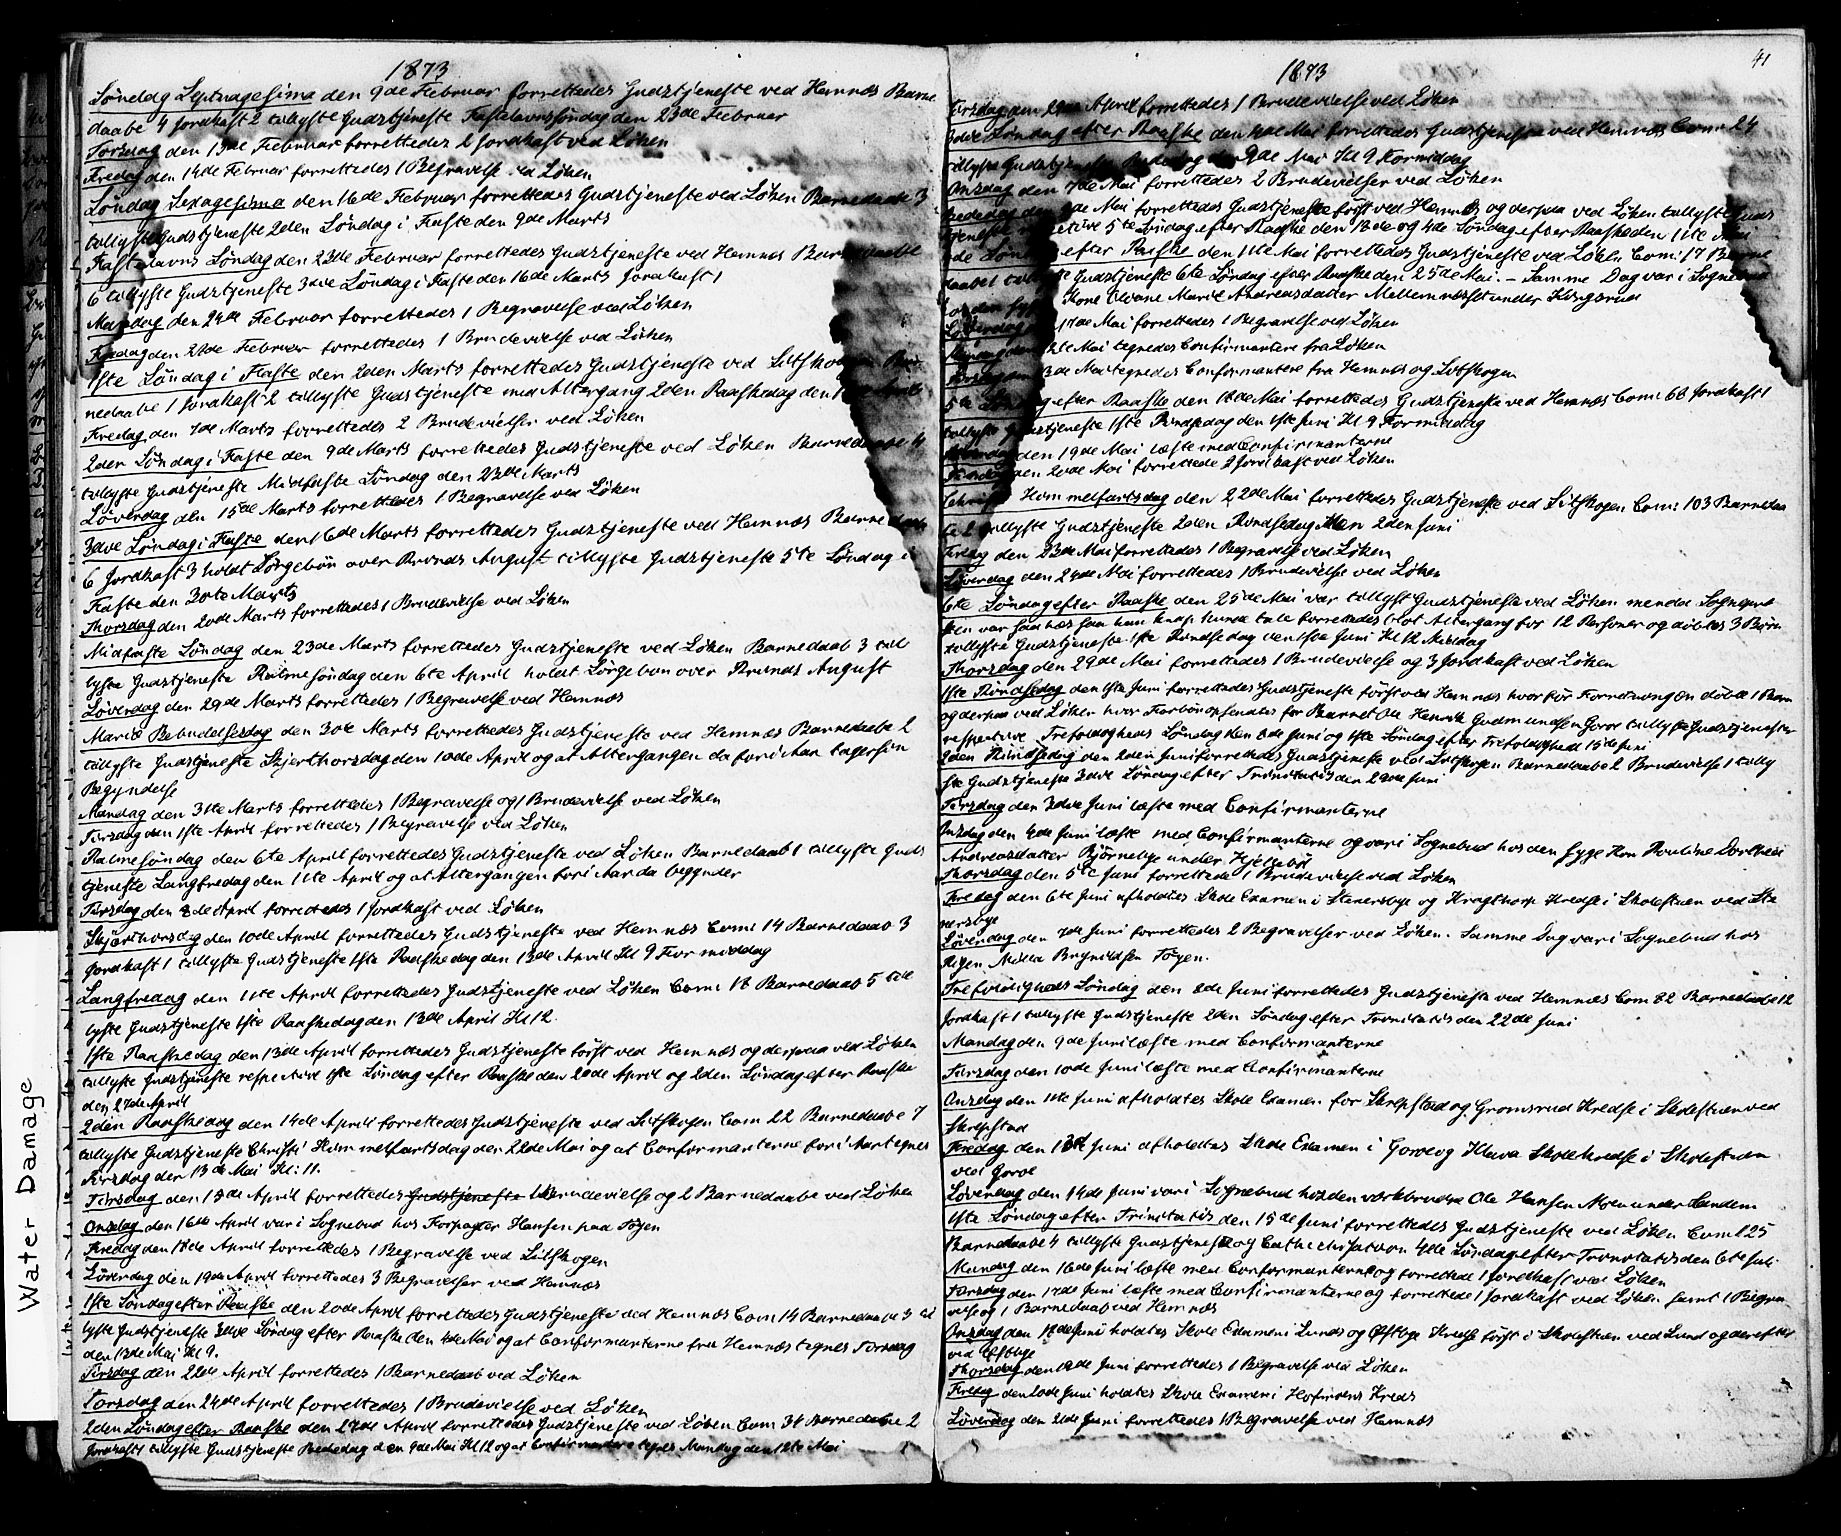 1873
Søndag Septuagesima den 9de Februar forrettedes Gudstjeneste ved Hemnæs Barne
daabe 4 Jordkast 2 tillyste Gudstjeneste Fastelavnssøndag den 23de Februar
Torsdag den 13de Februar forrettedes 2 Jordkast ved Løken
Fredag den 14de Februar forrettedes 1 Begravelse ved Løken
Søndag Sexagesima den 16de Februar forrettedes Gudstjeneste ved Løken Barnedaab 3
tillyste Gudstjeneste 2den Søndag i Faste den 9de Marts
Fastelavns Søndag den 23de Februar forrettedes Gudstjeneste ved Hemnæs Barnedaabe
6 tillyste Gudstjeneste 3die Søndag i Faste den 16de Marts Jordkast 1
Mandag den 24de Februar forrettedes 1 Begravelse ved Løken
Fredag den 28de Februar forrettedes 1 Brudevielse ved Løken
1ste Søndag i Faste den 2den Marts forrettedes Gudstjeneste ved Sitskogen Bar
nedaabe 1 Jordkast 2 tillyste Gudstjeneste med Altergang 2den Paaskedag den
Fredag den 7de Marts forrettedes 2 Brudevielser ved Løken
2den Søndag i Faste den 9de Marts forrettedes Gudstjeneste ved Løken Barnedaabe 4
tillyste Gudstjeneste Midfaste Søndag den 23de Marts
Løverdag den 15de Marts forrettedes 1 Begravelse ved Løken
3die Søndag i Faste den 16de Marts forrettedes Gudstjeneste ved Hemnæs Barnedaab
6 Jordkast 3 holdt Sørgebøn over Prinds August tillyste Gudstjeneste 5te Søndag i
Faste den 30te Marts
Thorsdag den 20de Marts forrettedes 1 Brudevielse ved Løken
Midfaste Søndag den 23de Marts forrettedes Gudstjeneste ved Løken Barnedaab 3 til
lyste Gudstjeneste Palmesøndag den 6te April holdt Sørgebøn over Prinds August
Løverdag den 29de Marts forrettedes 1 Begravelse ved Hemnæs
Mariæ Bebudelsesdag den 30te Marts forrettedes Gudstjeneste ved Hemnæs Barnedaabe 2
tillyste Gudstjeneste Skjærthorsdag den 10de April og at Altergangen da for i Aar tager sin
Begyndelse
Mandag den 31te Marts forrettedes 1 Begravelse og 1 Brudevielse ved Løken
Tirsdag den 1ste April forrettedes 1 Begravelse ved Løken
Palmesøndag den 6te April forrettedes Gudstjeneste ved Løken Barnedaab 1 tillyste Guds
tjeneste Langfredag den 11te April og at Altergangen for i Aar da begynder
Tirsdag den 8de April forrettedes 1 Jordkast ved Løken
Skjærthorsdag den 10de April forrettedes Gudstjeneste ved Hemnæs Com: 14 Barnedaab 3
Jordkast 1 tillyste Gudstjeneste 1ste Paaskedag den 13de April Kl 9 Formiddag
Langfredag den 11te April forrettedes Gudstjeneste ved Løken Com: 18 Barnedaab 5 til
lyste Gudstjeneste 1ste Paaskedag den 13de April Kl 12.
1ste Paaskedag den 13de April forrettedes Gudstjeneste først ved Hemnæs og derpaa ved Løken
tillyste Gudstjeneste respective 1ste Søndag efter Paaske den 20de April og 2den Søndag efter Paaske
den 27de April
2den Paaskedag den 14de April forrettedes Gudstjeneste ved Sitskogen Com 22 Barnedaabe 7
tillyste Gudstjeneste Christi Himmelfartsdag den 22de Mai og at Confirmanterne for i Aar tegnes
Tirsdag den 13de Mai Kl: 11.
Tirsdag den 15de April forrettedes Gudstjeneste 1 Brudevielse og 2 Barnedaabe ved Løken
Onsdag den 16de April var i Sognebud hos Forpagter Hansen paa Tøyen
Fredag den 18de April forrettedes 1 Begravelse ved Sitskogen
Løverdag den 19de April forrettedes 3 Begravelser ved Hemnæs
1ste Søndag efter Paaske den 20de April forrettedes Gudstjeneste ved Hemnæs Com 14 Barnedaabe 3 til
lyste Gudstjeneste 3die Søndag efter Paaske den 4de Mai og at Confirmanterne fra Hemnæs tegnes Tirsdag
den 13de Mai Kl 9.
Tirsdag den 22de April forrettedes 1 Barnedaab ved Løken
Torsdag den 24de April forrettedes 1 Brudevielse ved Løken
2den Søndag efter Paaske den 27de April forrettedes Gudstjeneste ved Løken Com 34 Barnedaabe 2
Jordkast 1 tillyste Gudstjeneste Bededag den 9de Mai Kl 12 og at Confirmanterne tegnes Mandag den 12te Mai
41
1873
Tirsdag den 29de April forrettedes 1 Brudevielse ved Løken
3die Søndag efter Paaske den 4de Mai forrettedes Gudstjeneste ved Hemnæs Com: 24
tillyste Gudstjeneste Bededag den 9de Mai Kl 9 Formiddag
Onsdag den 7de Mai forrettedes 2 Brudevielser ved Løken
Bededag den 9de Mai forrettedes Gudstjeneste først ved Hemnæs og derpaa ved Løken tillyste Guds
tjeneste respective 5te Søndag efter Paaske den 18de og 4de Søndag efter Paaske den 11te Mai
4de Søndag efter Paaske den 11te Mai forrettedes Gudstjeneste ved Løken Com: 17 Barne
daabe 1 tillyste Gudstjeneste 6te Søndag efter Paaske den 25de Mai. – Samme Dag var i Sognebud
hos den syge Kone Oleane Marie Andreasdatter Mellemnæsset under Kragsrud
Løverdag 17de Mai forrettedes 1 Begravelse ved Løken
Mandag den 12te Mai tegnedes Confirmantere fra Løken
Tirsdag den 13de Mai tegnedes Confirmantere fra Hemnæs og Sitskogen
5te Søndag efter Paaske den 18de Mai forrettedes Gudstjeneste ved Hemnæs Com: 68 Jordkast 1
tillyste Gudstjeneste 1ste Pindsedag den 1ste Juni Kl 9 Formiddag
Mandag den 19de Mai læste med Confirmanterne
Tirsdag den 20de Mai forrettede 2 Jordkast ved Løken
Christi Himmelfartsdag den 22de Mai forrettedes Gudstjeneste ved Sitskogen Com: 103 Barnedaa
be 2 tillyste Gudstjeneste 2den Pindsedag den 2den Juni
Fredag den 23de Mai forrettedes 1 Begravelse ved Løken
Løverdag den 24de Mai forrettedes 1 Brudevielse ved Løken
6te Søndag efter Paaske den 25de Mai var tillyst Gudstjeneste ved Løken men da Sognepræ
sten var saa hæs saa han knap kunde tale forrettedes blot Altergang for 12 Personer og døbtes 3 Børn
tillyste Gudstjeneste 1ste Pindsedag den 1ste Juni Kl 12 Middag
Thorsdag den 29de Mai forrettedes 1 Brudevielse og 3 Jordkast ved Løken
1ste Pindsedag den 1ste Juni forrettedes Gudstjeneste først ved Hemnæs hvor før Forretningen døbte 1 Barn
og derpaa ved Løken hvor Forbøn opsendtes for Barnet Ole Henrik Gudmundsen Gorve tillyste Gudstjenester
respective Trefoldigheds Søndag den 8de Juni og 1ste Søndag efter Trefoldighed 15de Juni
2den Pindsedag den 2den Juni forrettedes Gudstjeneste ved Sitskogen Barnedaabe 2 Brudevielse 1 tilly
ste Gudstjeneste 3die Søndag efter Trinitatis den 29de Juni
Tirsdag den 3die Juni læste med Confirmanterne
Onsdag den 4de Juni læste med Confirmanterne og var i Sognebud hos den syge Kone Pauline Dorthea
Andreasdatter Bjørnebye under Hjellebøl
Thorsdag den 5te Juni forrettede 1 Brudevielse ved Løken
Fredag den 6te Juni afholdtes Skole Examen i Stenersbye og Kragthorp Kredse i Skolestuen ved Ste
nersbye
Løverdag den 7de Juni forrettedes 2 Begravelser ved Løken. Samme Dag var i Sognebud hos
Pigen Milla Brynildsen Tøyen.
Trefoldigheds Søndag den 8de Juni forrettedes Gudstjeneste ved Hemnæs Com 82 Barnedaabe 12
Jordkast 1 tillyste Gudstjeneste 2den Søndag efter Trinitatis den 22de Juni
Mandag den 9de Juni læste med Confirmanterne
Tirsdag den 10de Juni læste med Confirmanterne
Onsdag den 11te Juni afholdtes Skole Examen for Skrepstad og Gromsrud Kredse i Skolestuen ved
Skrepstad
Fredag den 13de Juni afholdtes Skole Examen i Gorve og Kleva Skolekredse i Skolestuen
ved Gorve
Løverdag den 14de Juni var i Sognebud hos den værkbrudne Ole Hansen Moen under Sandem
1ste Søndag efter Trinitatis den 15de Juni forrettedes Gudstjeneste ved Løken Com 125
Barnedaabe 4 tillyste Gudstjeneste og Cathechisation 4de Søndag efter Trinitatis den 6te Juli
Mandag den 16de Juni læste med Confirmanterne og forrettede 1 Jordkast ved Løken
Tirsdag den 17de Juni læste med Confirmanterne og forrettede 1 Jordkast ved Løken samt 1 Begra
velse og 1 Barnedaab ved Hemnæs
Onsdag den 18de Juni holdtes Skole Examen i Lunds og Østbye Kredse først i Skolestuen ved Lund og derefter
ved Østbye
Thorsdag den 19de Juni forrettedes 1 Begravelse ved Løken
Fredag den 20de Juni holdtes Skole Examen i Hofindens Kreds
Løverdag den 21de Juni forrettedes 1 Begravelse ved Hemnæs
Water Damage